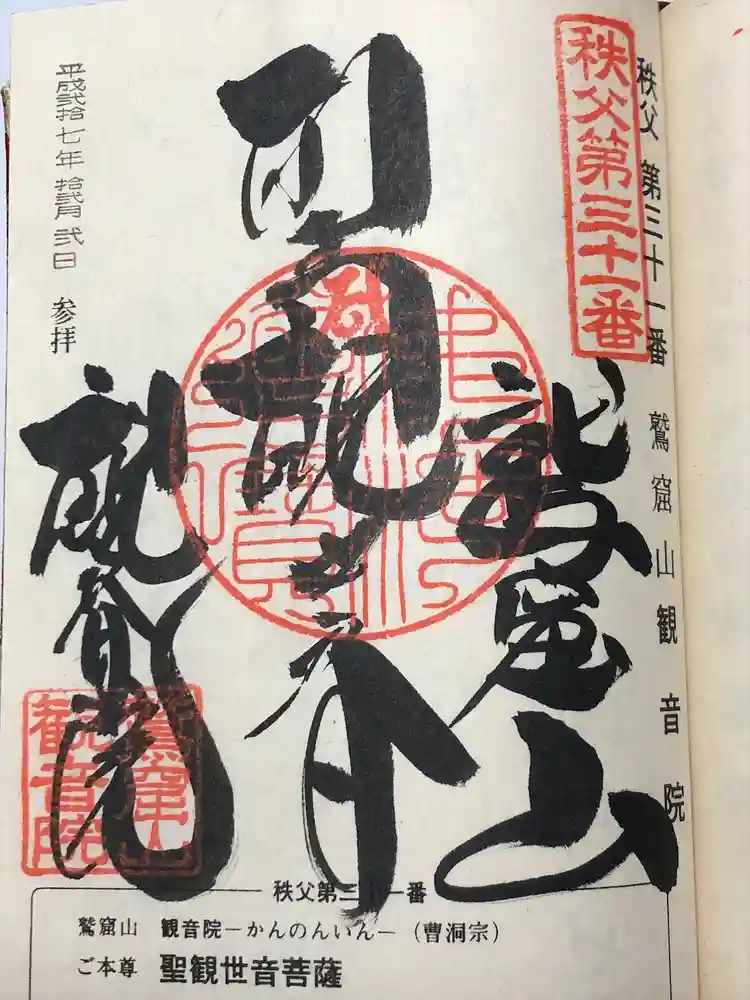 秩父第三十一番
秩父 第三十一番 鷲窟山観音院
鷲窟山
聖観世音
観音院
平成弐拾七年 拾弐月 弐日 参拝
鷲窟山
観音院
秩父第三十一番
鷲窟山 観音院－かんのんいん－(曹洞宗)
ご本尊 聖観世音菩薩